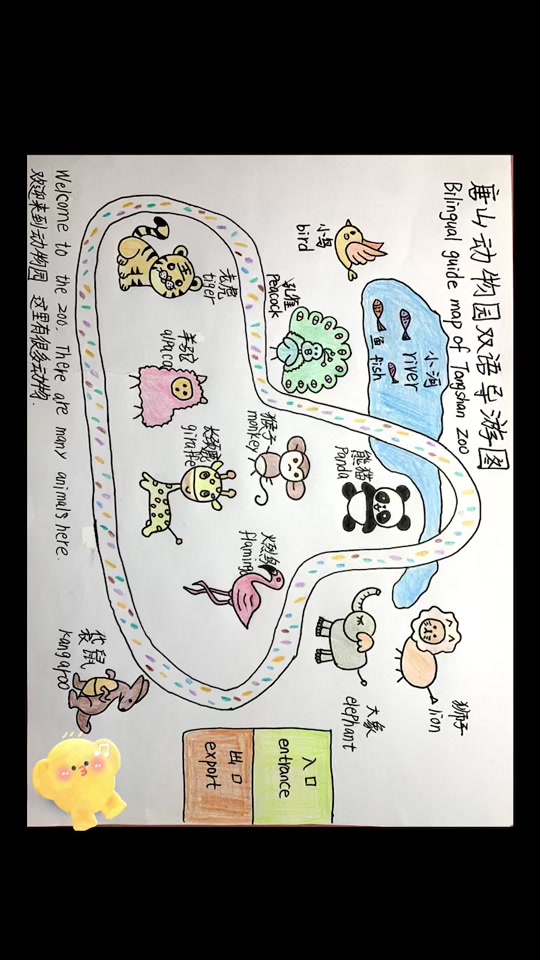 唐山动物园双语导游图
Bilingual guide map of Tangshan zoo
狮子
lion
小河
river
鱼 fish
大象
elephant
熊猫
Panda
小鸟
bird
入口
entrance
孔雀
Peacock
猴子
monkey
火烈鸟
flamingo
出口
export
老虎
tiger
长颈鹿
giraffe
羊驼
alpaca
袋鼠
kangaroo
Welcome to the zoo. There are many animals here.
欢迎来到动物园 这里有很多动物.